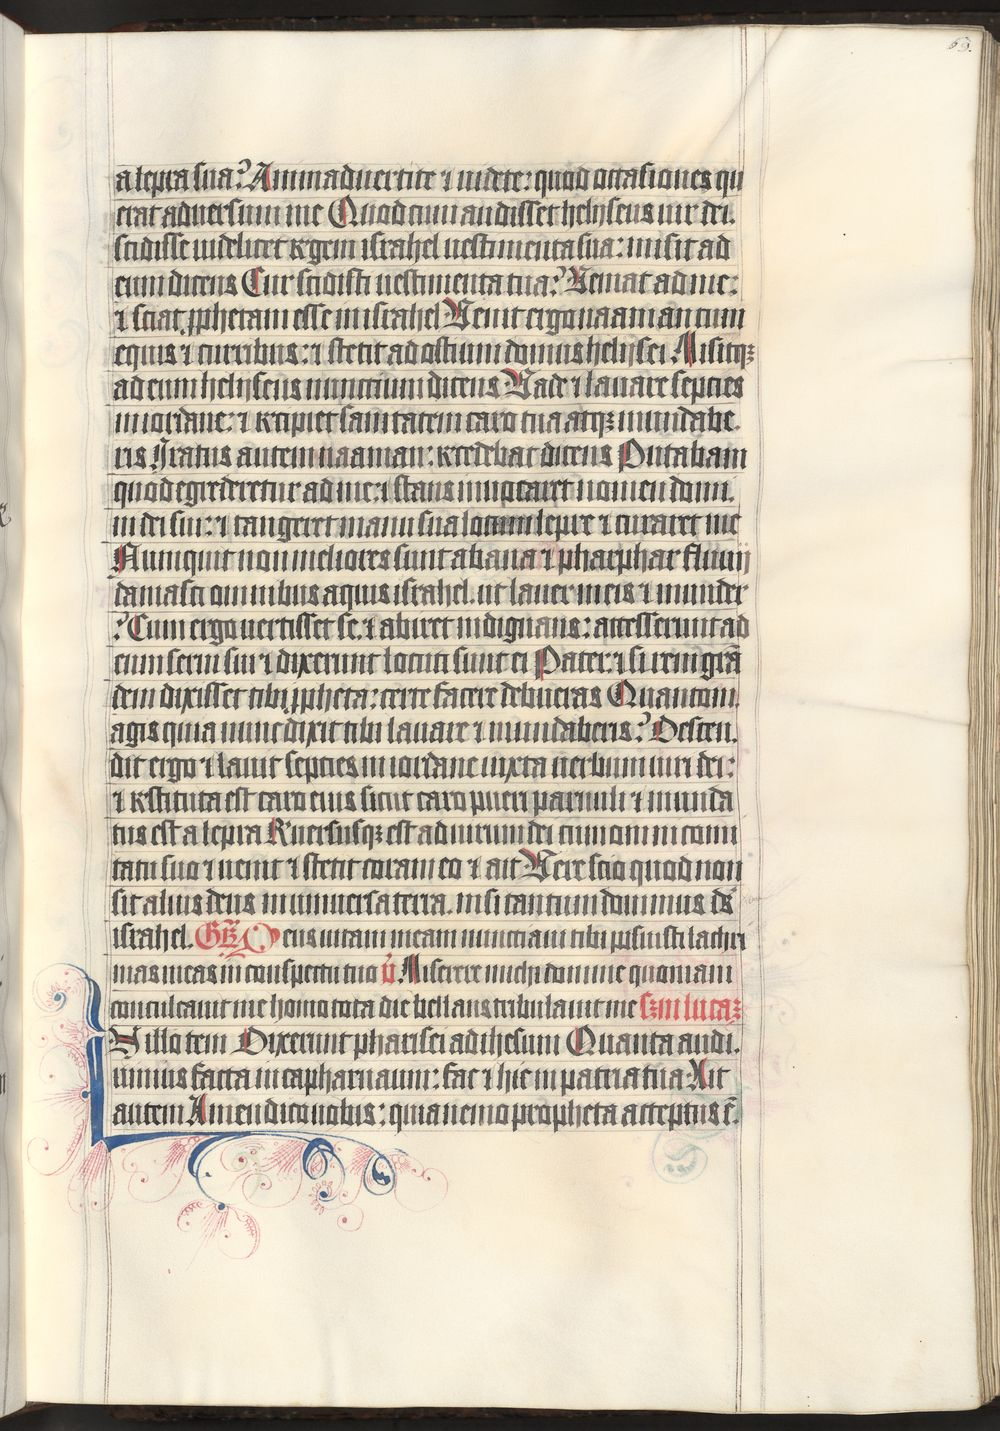 63.
a lepra sua? Animaduertite ⁊ uidete: quod occasiones qu
erat aduersum me Quod cum audisset helyseus uir dei.
scidisse uidelicet regem israhel uestimenta sua: misit ad
eum dicens Cur scidisti uestimenta tua? Veniat ad me:
⁊ sciat ꝓphetam esse in israhel Venit ergo naaman cum
equis ⁊ curribus: ⁊ stetit ad ostium domus helysei Misitqꝫ
ad eum helyseus nunctium dicens Vade ⁊ lauare septies
in iordane: ⁊ recipiet sanitatem caro tua atqꝫ mundabe.
ris Iratus autem naaman: recedebat dicens Putabam
quod egrederetur ad me: ⁊ stans inuocaret nomen domi.
ni dei sui: ⁊ tangeret manu sua locum lepre ⁊ curaret me
Numquit non meliores sunt abana ⁊ pharphar fluuij
damasci omnibus aquis israhel. ut lauer in eis ⁊ munder
? Cum ergo uertisset se. ⁊ abiret indignans: accesserunt ad
eum serui sui ⁊ dixerunt locuti sunt ei Pater: ⁊ si rem grā
dem dixisset tibi ꝓpheta: certe facere debueras Quantom
agis quia nunc dixit tibi lauare ⁊ mundaberis? Descen.
dit ergo ⁊ lauit septies in iordane iuxta uerbum uiri dei:
⁊ restituta est caro eius sicut caro pueri paruuli ⁊ munda
tus est a lepra Reuersusqꝫ est ad uirum dei cum omni comi
tatu suo ⁊ uenit ⁊ stetit coram eo ⁊ ait Vere scio quod non
sit alius deus in uniuersa terra. nisi tantum dominus ds̄
israhel. Gr̄ Deus uitam meam nunctiaui tibi posuisti lachri
mas meas in conspectu tuo v̄. Miserere michi domine quoniam
conculcauit me homo tota die bellans tribulauit me sꝫm lucaꝫ
In illo tem Dixerunt pharisei ad ihesum Quanta audi.
uimus facta in capharnaum: fac ⁊ hic in patria tua Ait
autem Amen dico uobis: quia nemo propheta acceptus ē.